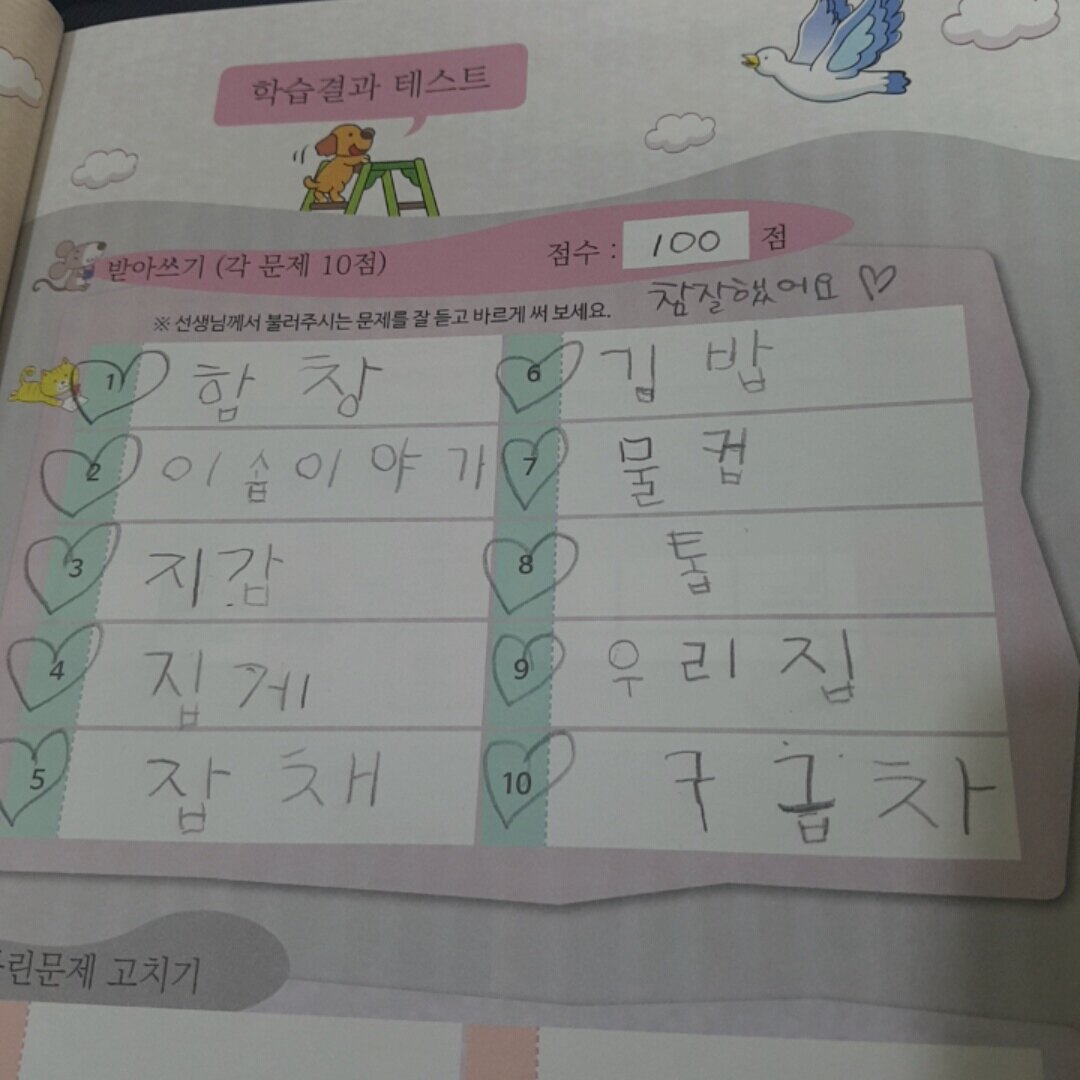 학습결과 테스트
받아쓰기 (각 문제 10점)
점수 : 100 점
참잘했어요 ♡
※ 선생님께서 불러주시는 문제를 잘 듣고 바르게 써 보세요.
1 합창
2 이솝이야기
3 지갑
4 집게
5 잡채
6 김밥
7 물컵
8 톱
9 우리집
10 구급차
린문제 고치기